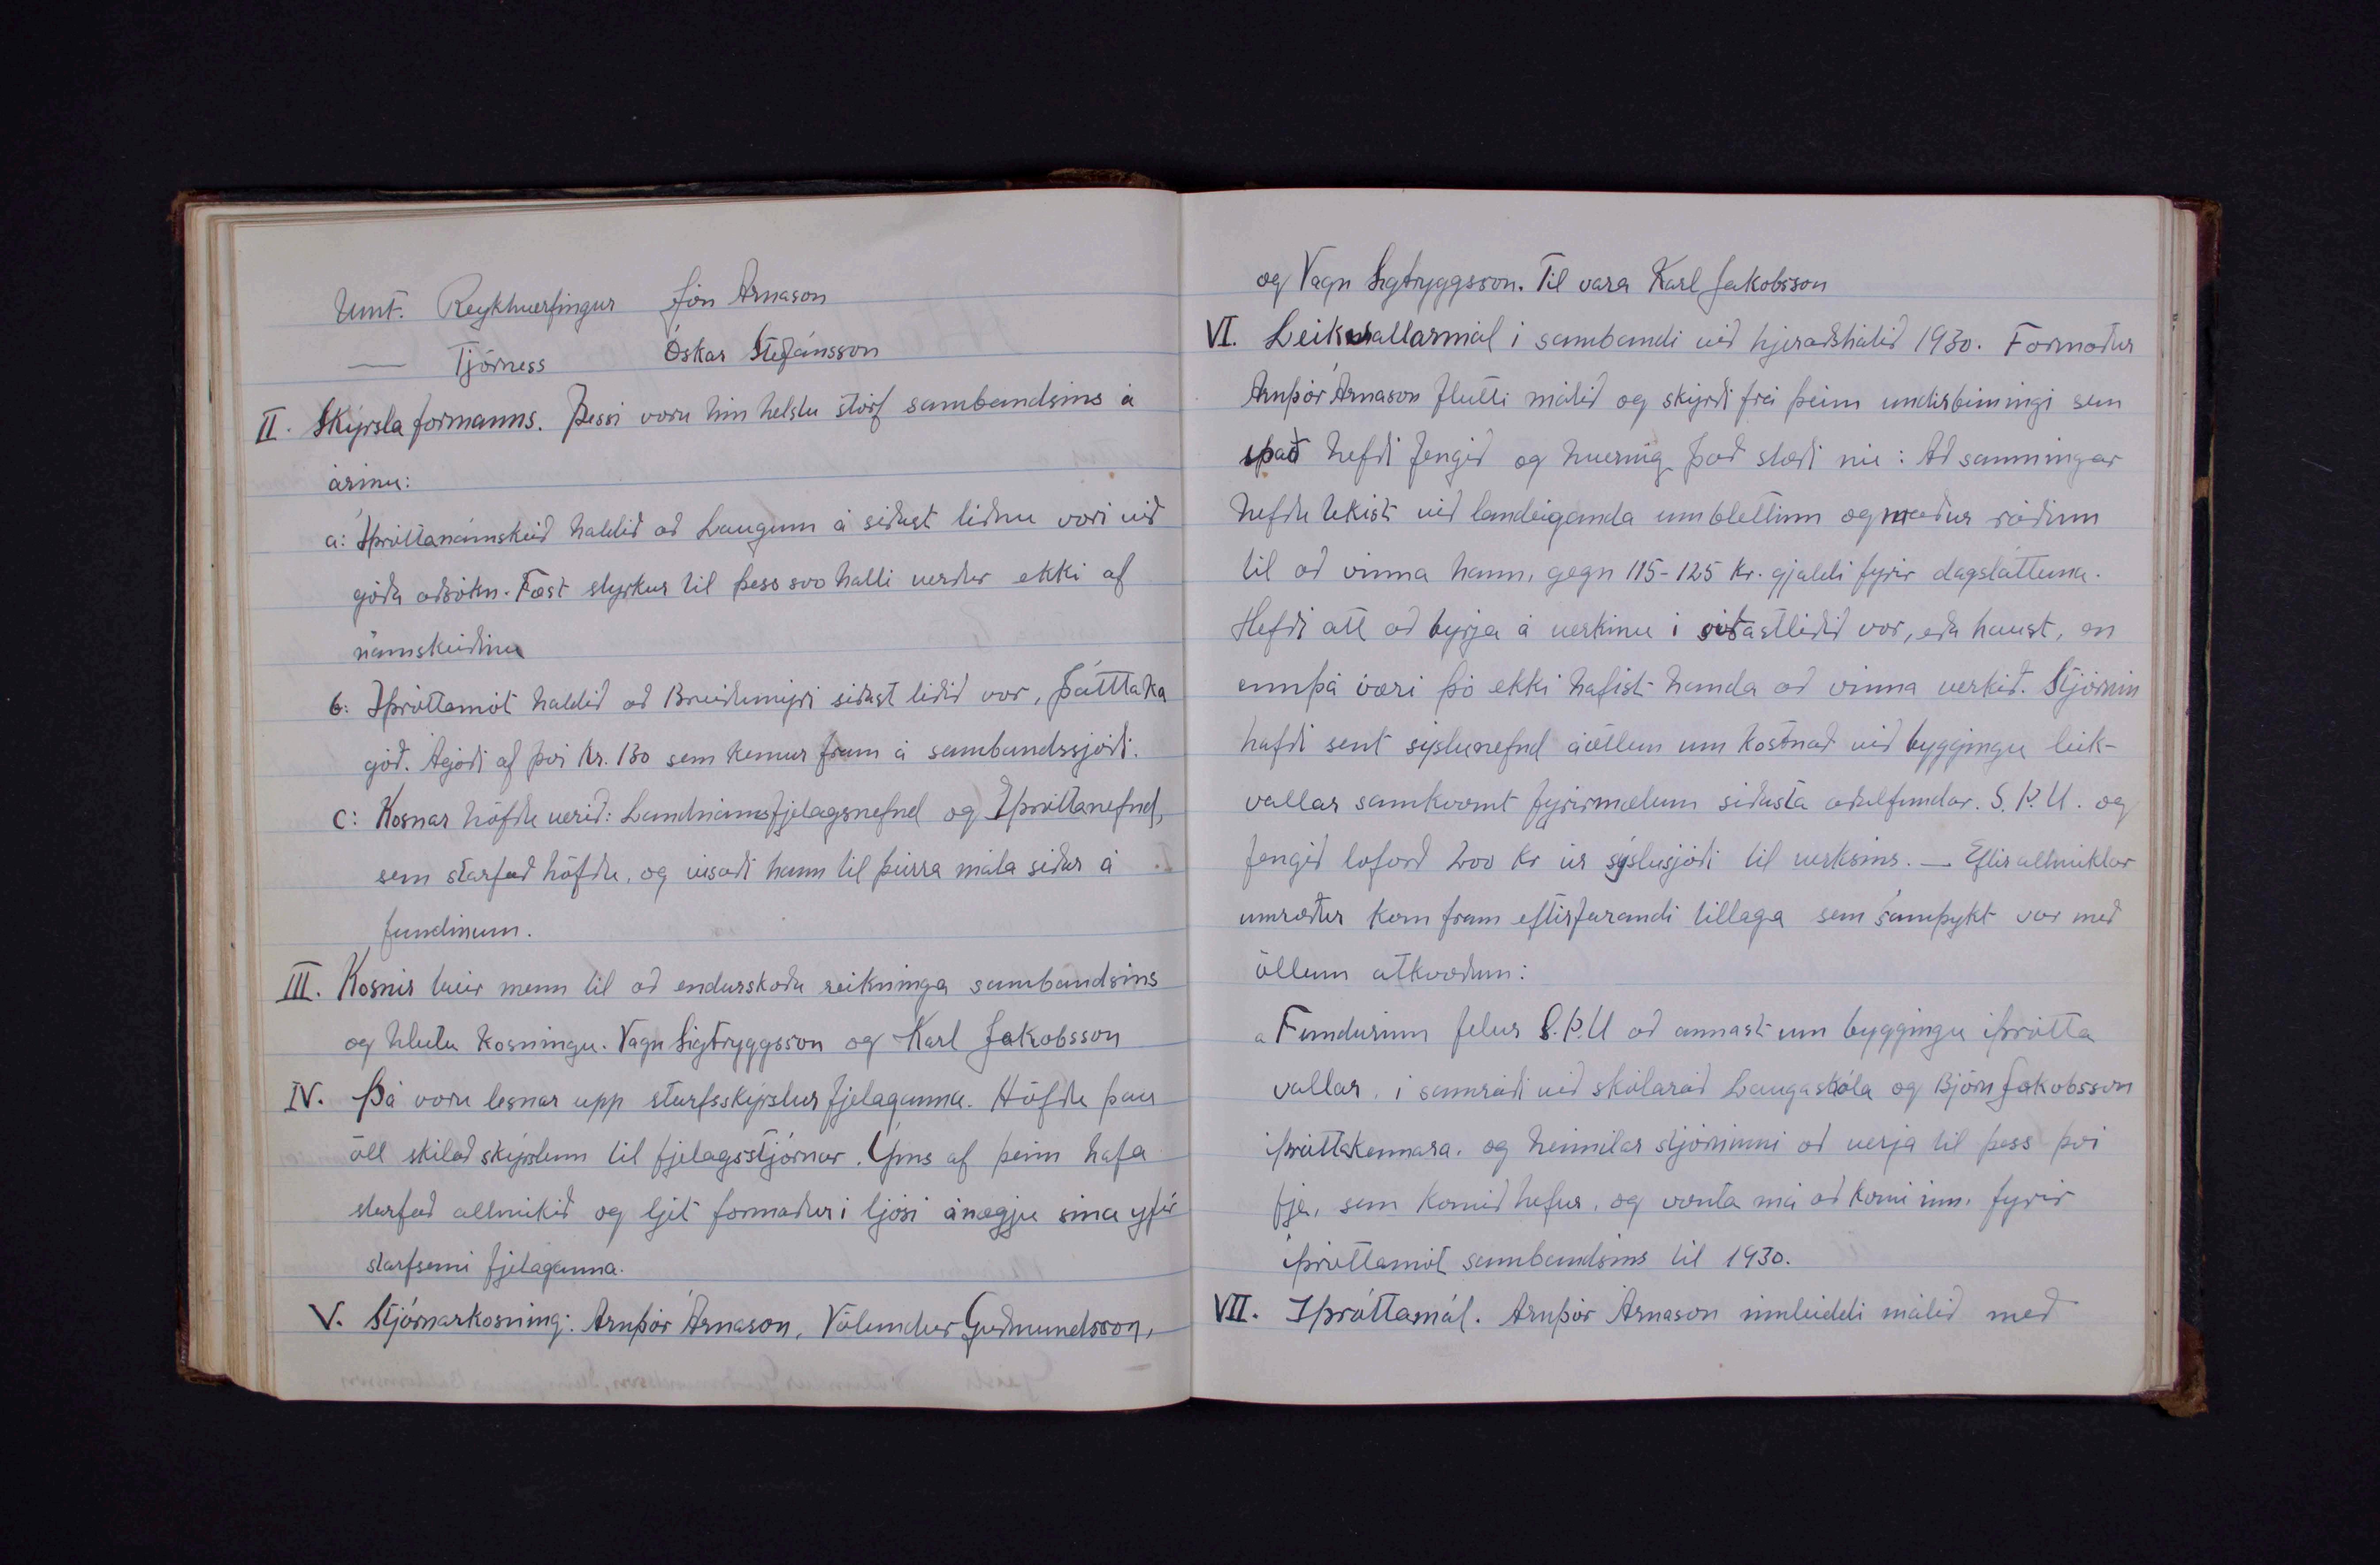 Umf. Reykhverfingur Jón Árnason
— Tjörness Óskar Stefánsson
II. Skýrsla formanns. Þessi voru hin helstu störf sambandsins á
árinu:
a: Íþróttanámskeið haldið að Laugum á síðast liðnu vori við
góða aðsókn. Fæst styrkur til þess svo halli verður ekki af
námskeiðinu
b: Íþróttamót haldið að Breiðumýri síðast liðið vor, þátttaka
góð. Ágóði af því kr. 130 sem kemur fram á sambandssjóði.
c: Kosnar höfðu verið: Landnámsfjelagsnefnd og Íþróttanefnd,
sem starfað höfðu, og vísaði hann til þeirra mála síðar á
fundinum.
III. Kosnir tveir menn til að endurskoða reikninga sambandsins
og hlutu kosningu. Vagn Sigtryggsson og Karl Jakobsson
IV. Þá voru lesnar upp starfsskýrslur fjelaganna. Höfðu þau
öll skilað skýrslum til fjelagsstjórnar. Ýms af þeim hafa
starfað allmikið og ljet formaður í ljósi ánægju sína yfir
starfsemi fjelaganna.
V. Stjórnarkosning: Arnþór Árnason, Völundur Guðmundsson,
og Vagn Sigtryggsson. Til vara Karl Jakobsson
VI. Leikvallarmál í sambandi við hjeraðshátíð 1930. Formaður
Arnþór Árnason flutti málið og skýrði frá þeim undirbúningi sem
það hefði fengið og hvernig það stæði nú: Að samningar
hefðu tekist við landeiganda um blettinn og maður ráðinn
til að vinna hann, gegn 115-125 kr. gjaldi fyrir dagsláttuna.
Hefði átt að byrja á verkinu í síðastliðið vor, eða haust, en
ennþá væri þó ekki hafist handa að vinna verkið. Stjórnin
hafði sent sýslunefnd áætlun um kostnað við byggingu leik-
vallar samkvæmt fyrirmælum síðasta aðalfundar. S.Þ.U. og
fengið loforð 200 kr úr sýslusjóði til verksins. — Eftir allmiklar
umræður kom fram eftirfarandi tillaga sem samþykt var með
öllum atkvæðum:
a Fundurinn felur S.Þ.U að annast um byggingu íþrótta
vallar, í samráði við skólaráð Laugaskóla og Björn Jakobsson
íþróttakennara, og heimilar stjórninni að verja til þess því
fje, sem komið hefur, og vænta má að komi inn, fyrir
íþróttamót sambandsins til 1930.
VII. Íþróttamál. Arnþór Árnason innleiddi málið með